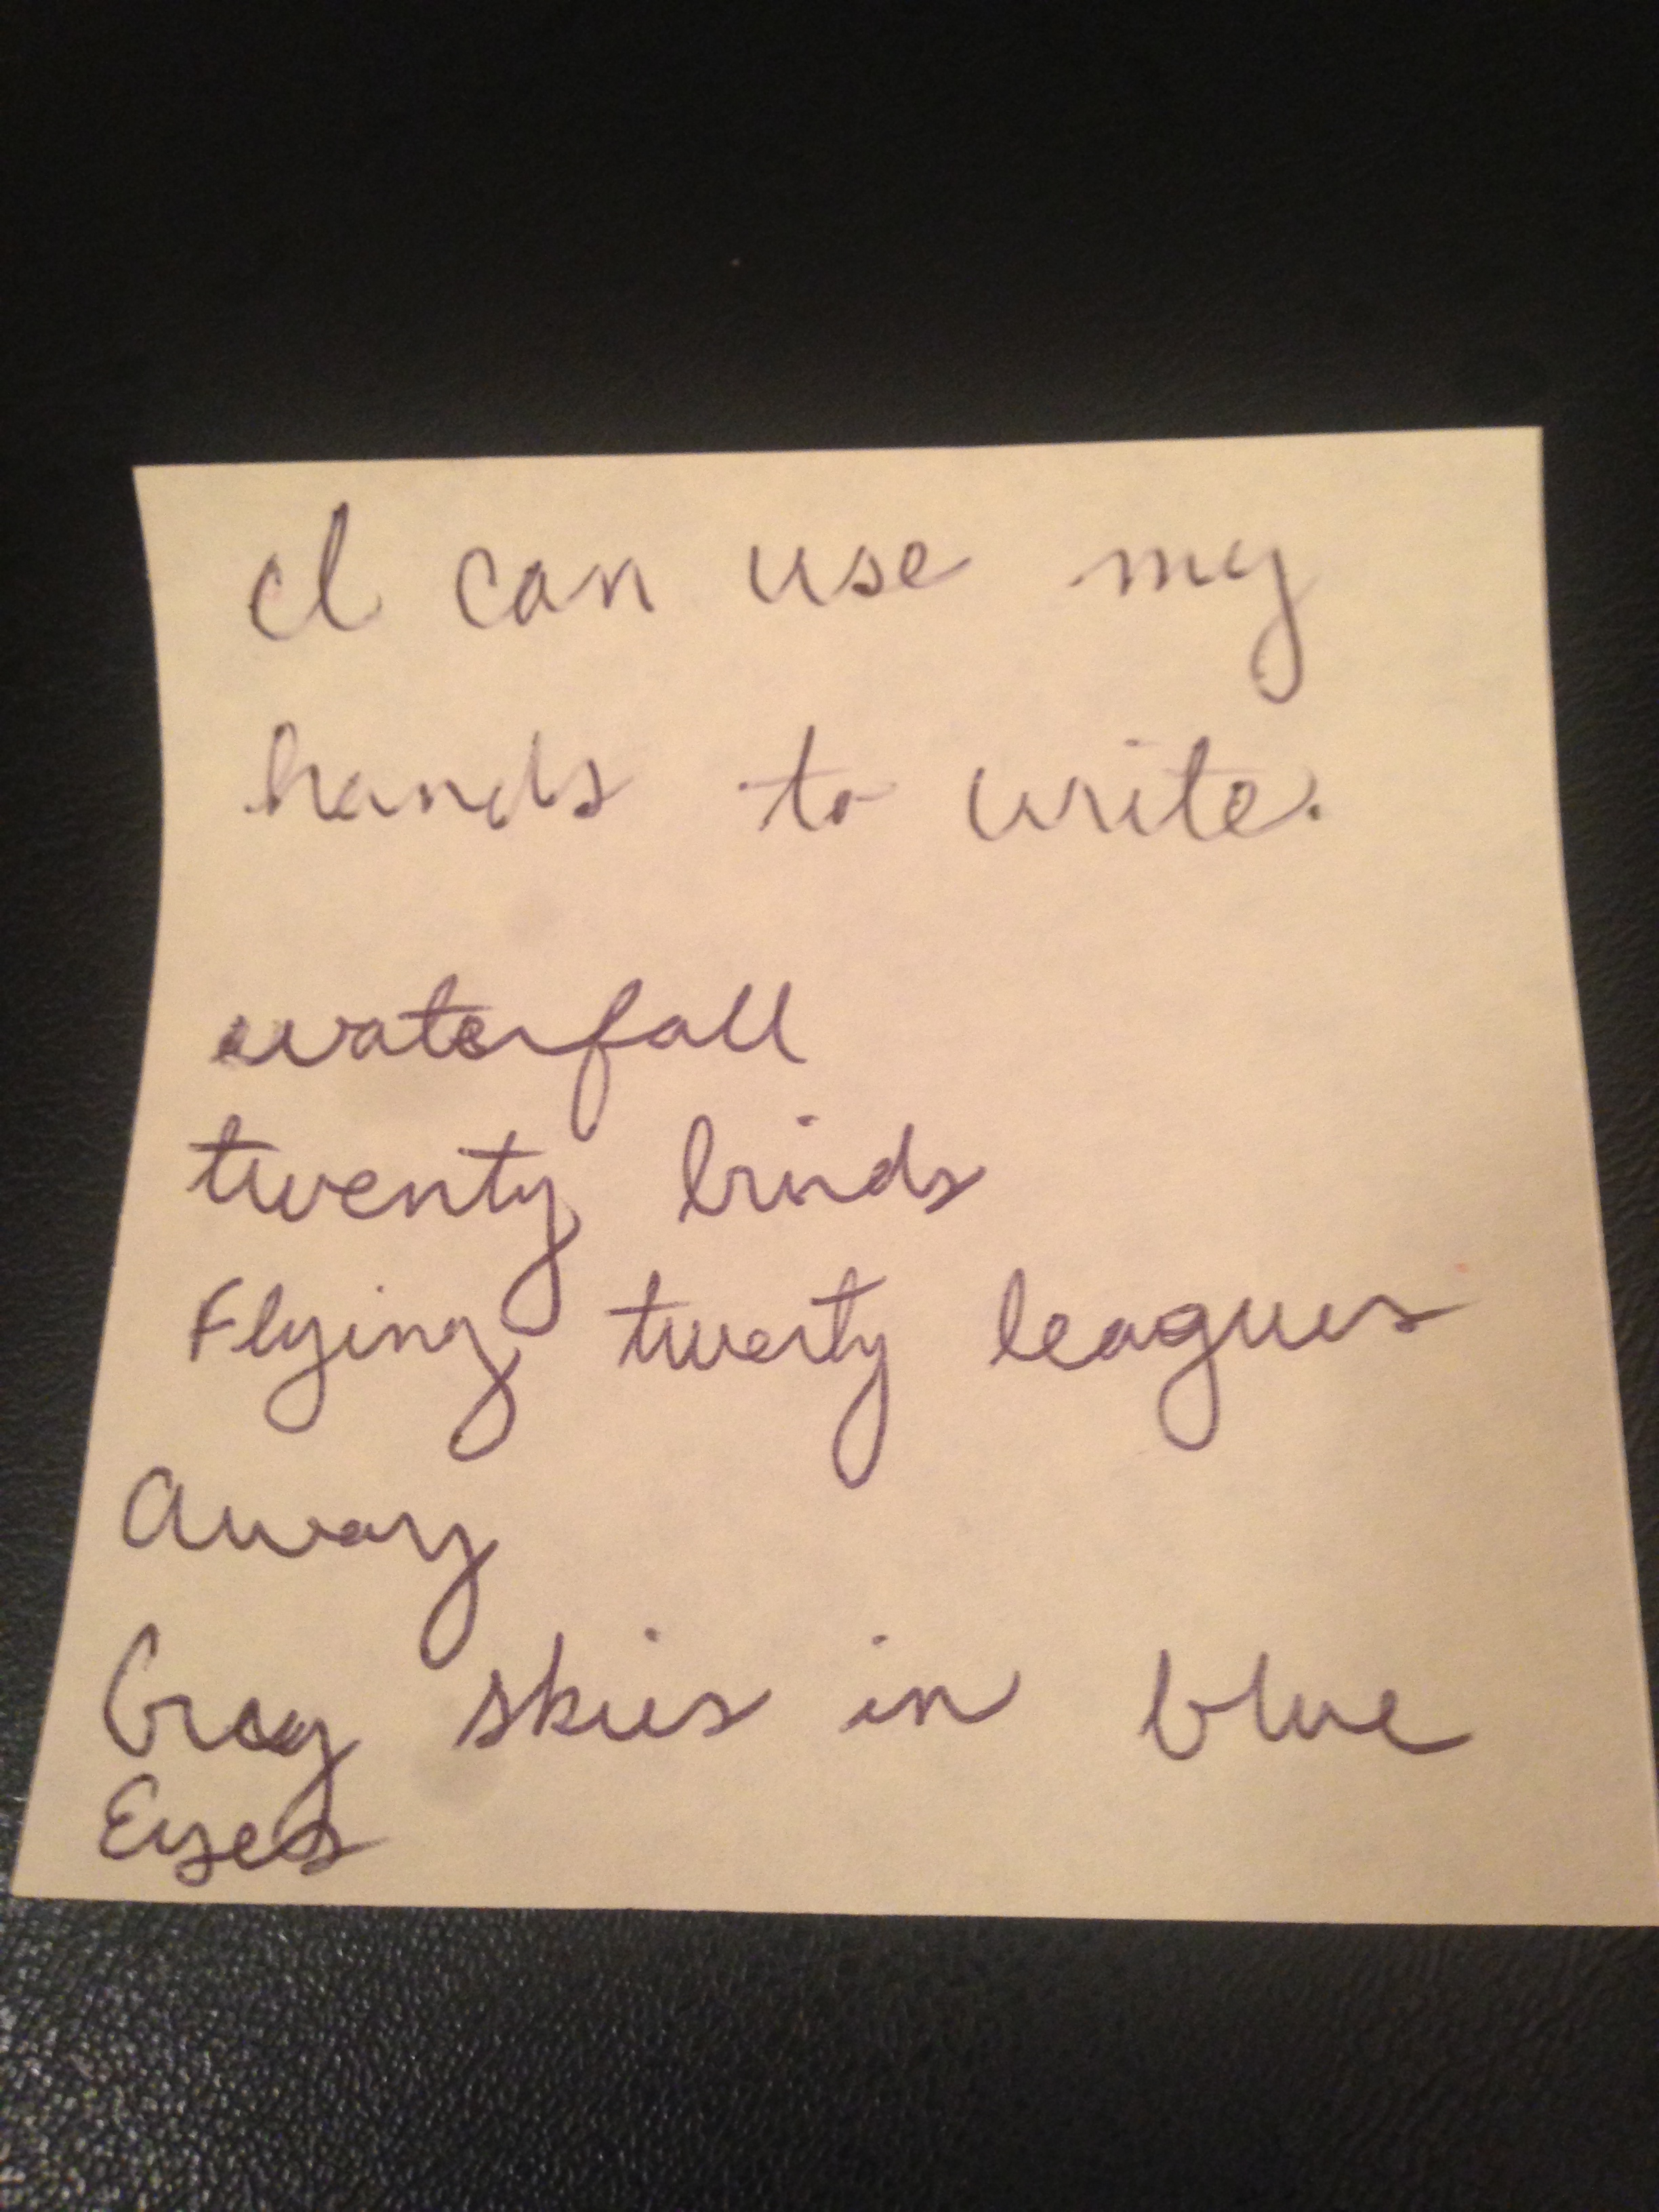 I can use my
hands to write.
waterfall
twenty birds
Flying twenty leagues
Away
Gray skies in blue
Eyes